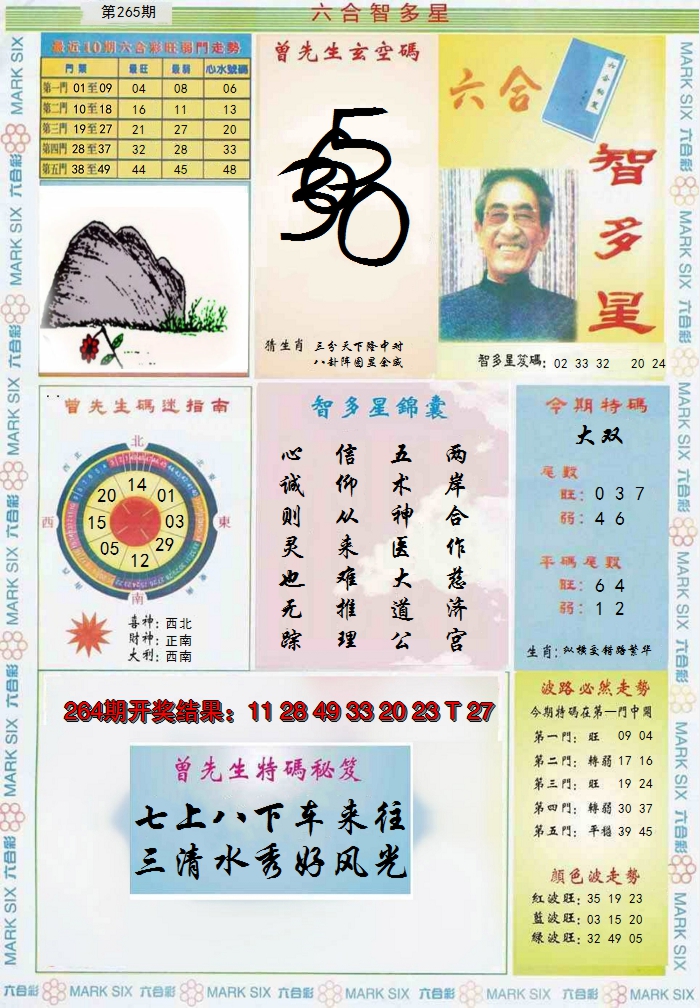 第265期
六合智多星
最近10期六合彩旺弱門走勢
門票 最旺 最弱 心水號碼
第一門 01至09 04 08 06
第二門 10至18 16 11 13
第三門 19至27 21 27 20
第四門 28至37 32 28 33
第五門 38至49 44 45 48
曾先生玄空碼
猜生肖
三分天下隆中对
八卦阵图显余威
六合
智多星
智多星笈碼: 02 33 32 20 24
曾先生碼迷指南
北
西
東
南
14
01
03
29
12
05
15
20
喜神: 西北
财神: 正南
大利: 西南
智多星錦囊
两岸合作慈济宫
五术神医大道公
信仰从来难推理
心诚则灵也无踪
今期特碼
大双
尾數
旺: 0 3 7
弱: 4 6
平碼尾數
旺: 6 4
弱: 1 2
生肖: 纵横交错路繁华
264期开奖结果: 11 28 49 33 20 23 T 27
曾先生特碼秘笈
七上八下车来往
三清水秀好风光
波路必然走勢
今期特碼在第一門中開
第一門: 旺 09 04
第二門: 轉弱 17 16
第三門: 旺 19 24
第四門: 轉弱 30 37
第五門: 平穩 39 45
顏色波走勢
紅波旺: 35 19 23
藍波旺: 03 15 20
绿波旺: 32 49 05
MARK SIX 六合彩